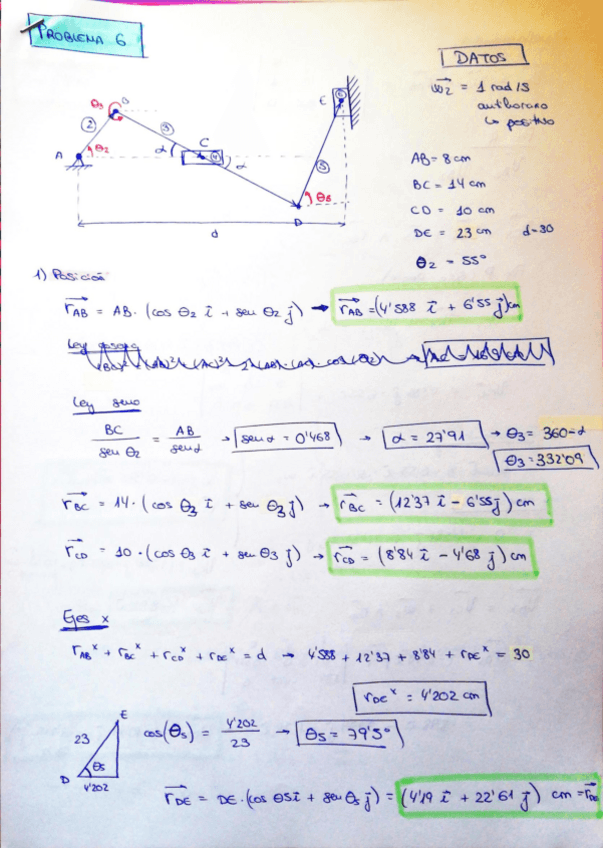 PROBLEMA 6
DATOS
ω₂ = 1 rad/s
antihorario
↳ positivo
AB = 8 cm
BC = 14 cm
CD = 10 cm
DE = 23 cm d=30
θ₂ = 55°
θ₃ B
E
2
3
C
A
θ₂
α
α
5
D
θ₅
d
1) Posición
r_AB = AB · (cos θ₂ i + sen θ₂ j) → r_AB = (4'588 i + 6'55 j) cm
Ley seno
BC / sen θ₂ = AB / sen α → sen α = 0'468 → α = 27'91 → θ₃ = 360-α
θ₃ = 332'09
r_BC = 14 · (cos θ₃ i + sen θ₃ j) → r_BC = (12'37 i - 6'55 j) cm
r_CD = 10 · (cos θ₃ i + sen θ₃ j) → r_CD = (8'84 i - 4'68 j) cm
Ejes x
r_AB^x + r_BC^x + r_CD^x + r_DE^x = d → 4'588 + 12'37 + 8'84 + r_DE^x = 30
r_DE^x = 4'202 cm
E
23
cos(θ₅) = 4'202 / 23 → θ₅ = 79'5°
D θ₅
4'202
r_DE = DE · (cos θ₅ i + sen θ₅ j) = (4'19 i + 22'61 j) cm = r_DE